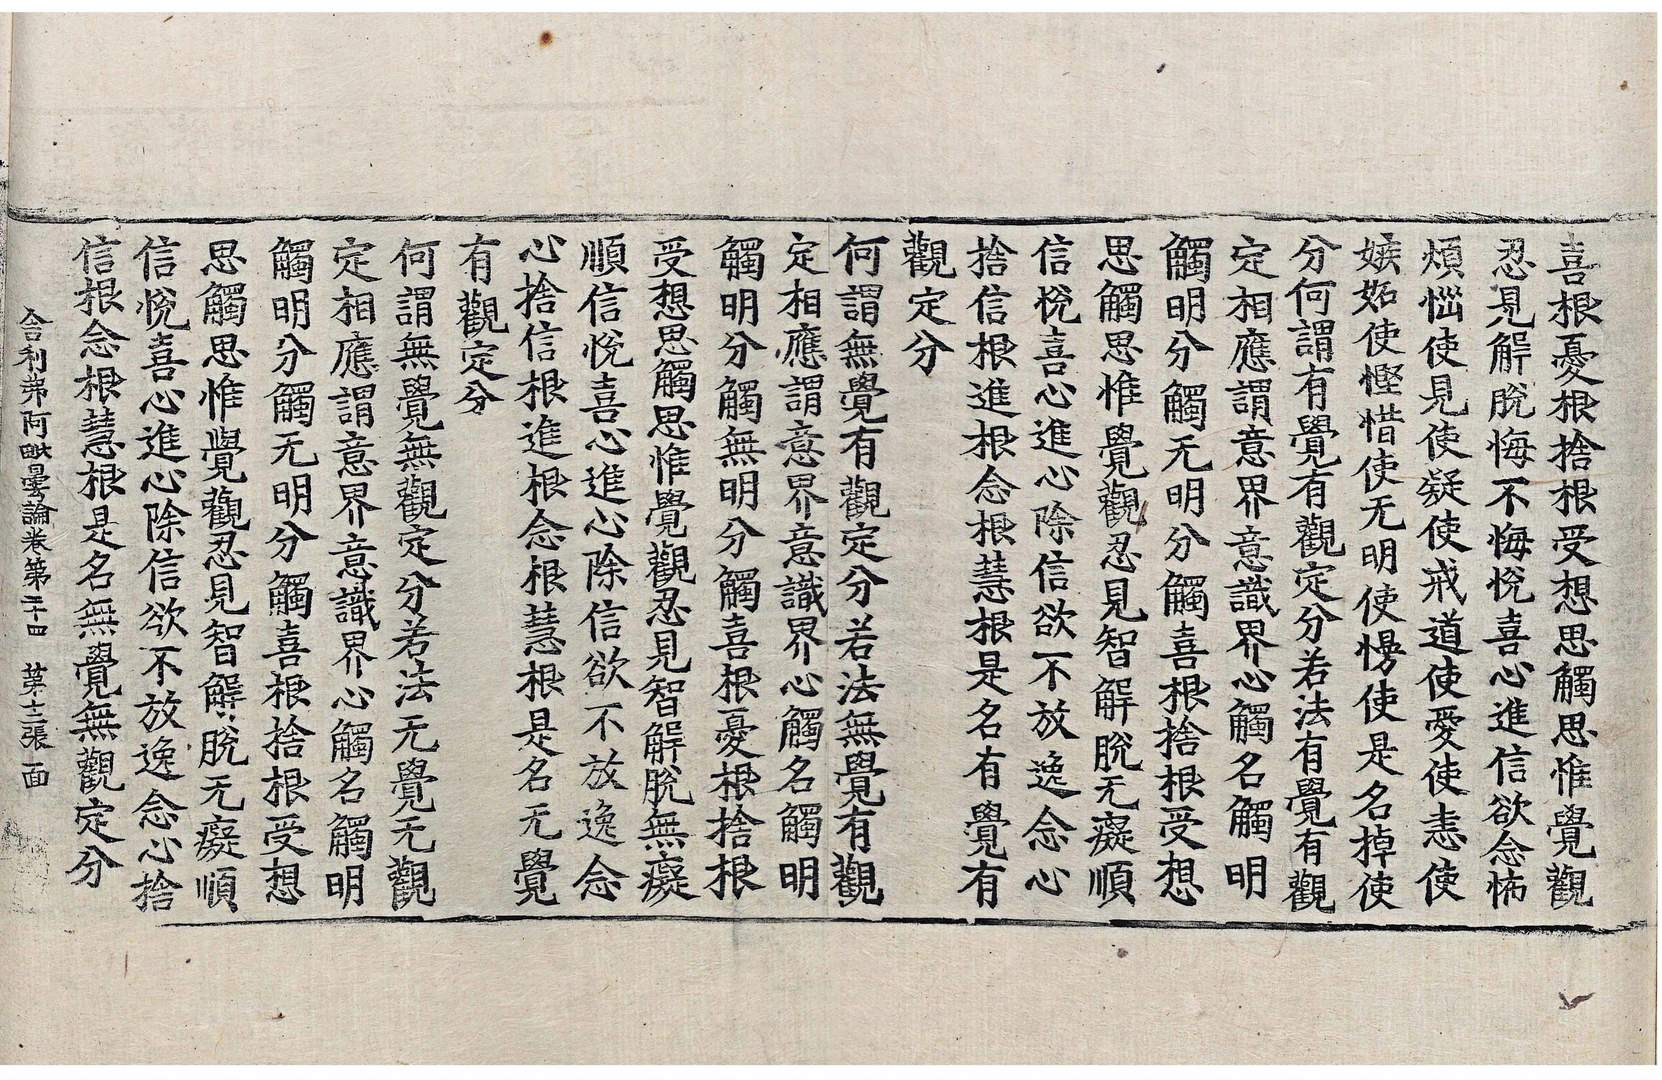 喜根憂根捨根受想思觸思惟覺觀
忍見解脫悔不悔悅喜心進信欲念怖
煩惱使見使疑使戒道使愛使恚使
嫉妬使慳惜使无明使憍使是名掉使
分何謂有覺有觀定分若法有覺有觀
定相應謂意界意識界心觸名觸明
觸明分觸无明分觸喜根捨根受想
思觸思惟覺觀忍見智解脫无癡順
信悅喜心進心除信欲不放逸念心
捨信根進根念根慧根是名有覺有
觀定分
何謂無覺有觀定分若法無覺有觀
定相應謂意界意識界心觸名觸明
觸明分觸無明分觸喜根憂根捨根
受想思觸思惟覺觀忍見智解脫無癡
順信悅喜心進心除信欲不放逸念
心捨信根進根念根慧根是名无覺
有觀定分
何謂無覺無觀定分若法无覺无觀
定相應謂意界意識界心觸名觸明
觸明分觸无明分觸喜根捨根受想
思觸思惟覺觀忍見智解脫无癡順
信悅喜心進心除信欲不放逸念心捨
信根念根慧根是名無覺無觀定分
舍利弗阿毗曇論卷第二十四 第十二張 面